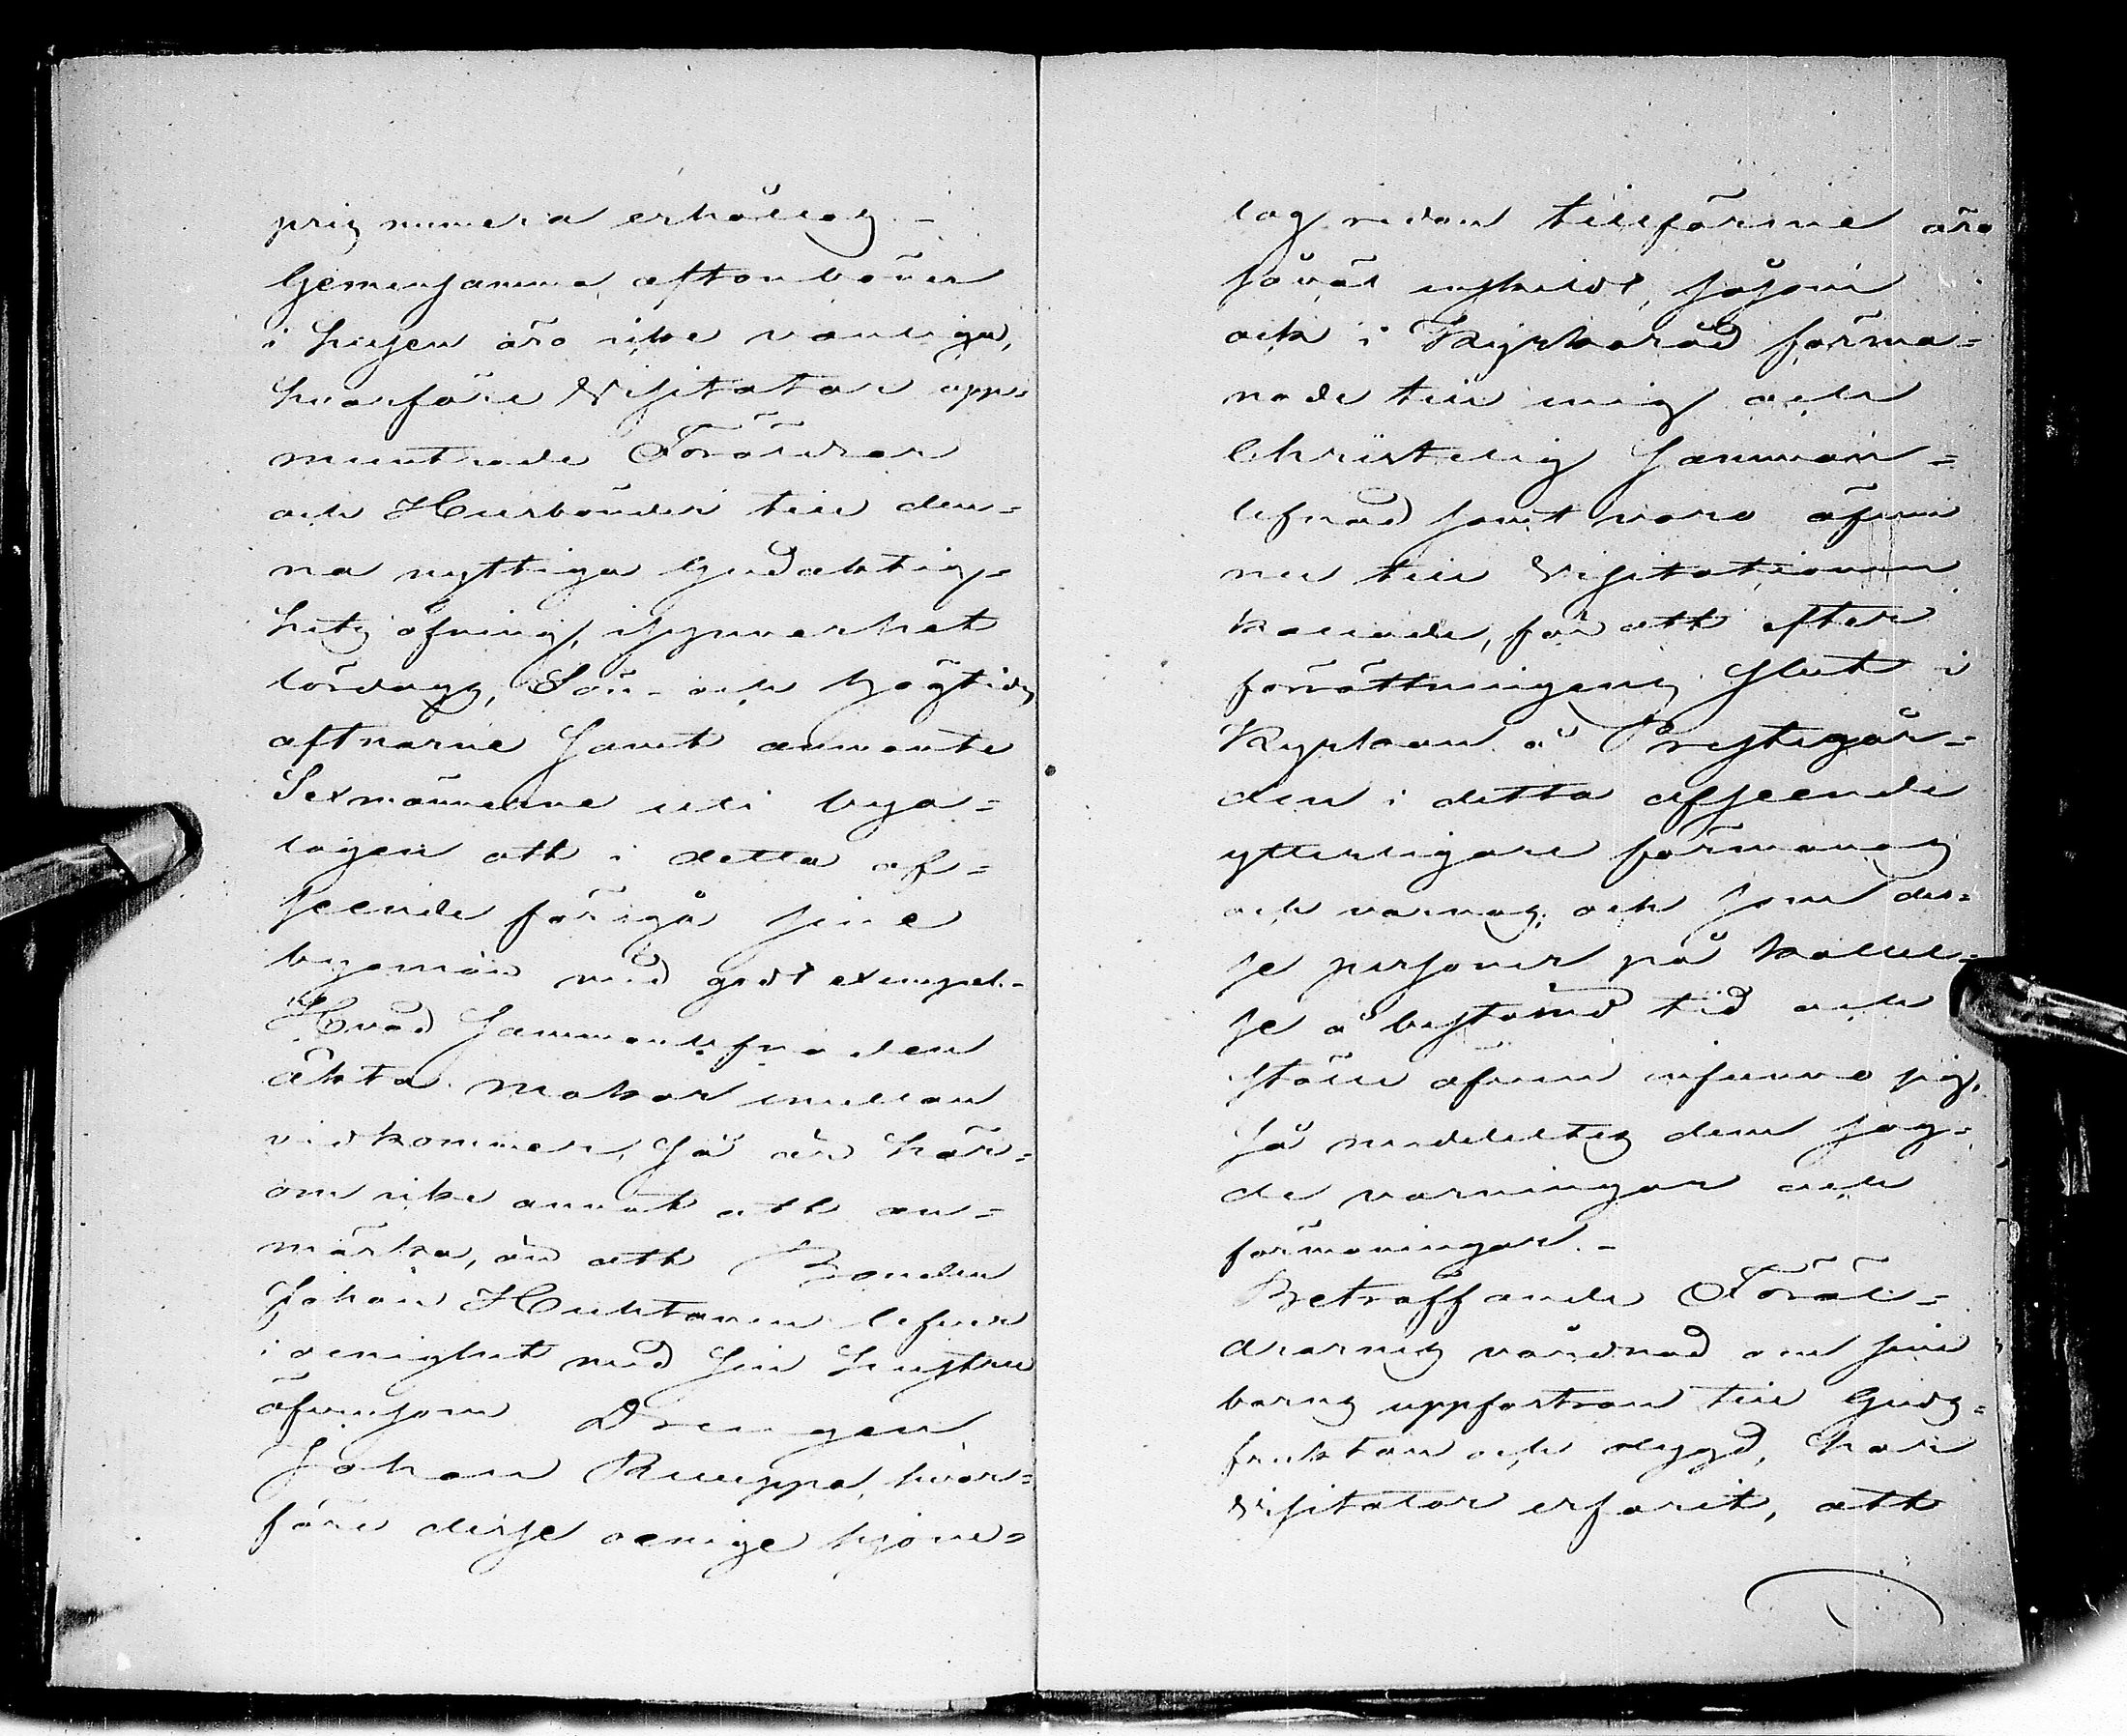 pris numera erhållas. –
Gemensamma aftonböner
i husen äro icke vanliga,
hvarföre Visitator upp=
muntrade Föräldrar
och Husbönder till den=
na nyttiga Gudaktig=
hets öfning, isynnerhet
lördags, Sön- och högtids
aftnarne samt anmante
Sexmännerne uti bya=
lagen att i detta af=
seende föregå sine
byamän med godt exempel. –
Hvad sammanlefnaden
äkta makar emellan
vidkommer, så är här=
om icke annat att an=
märka, än att Bonden
Johan Huhtanen lefver
i oenighet med sin hustru
äfvensom Drengen
Johan Ruuppa, hvar=
före desse oenige hjone=
lag redan tillförene äro
såväl enskildt, såsom
ock i Kyrkoråd förma=
nade till enig och
Christelig samman=
lefnad samt voro äfven
nu till Visitationen
kallade, för att efter
förrättningens slut i
Kyrkan å Prestegår=
den i detta afseende
ytterligare förmanas
och varnas; och som des=
se personer på kallel=
se å bestämd tid och
ställe äfven infunno sig,
så meddeltes dem sag=
de varningar och
förmaningar. –
Beträffande Föräl=
drarnes vårdnad om sine
barns uppfostran till Guds=
fruktan och dygd, har
Visitator erfarit, att